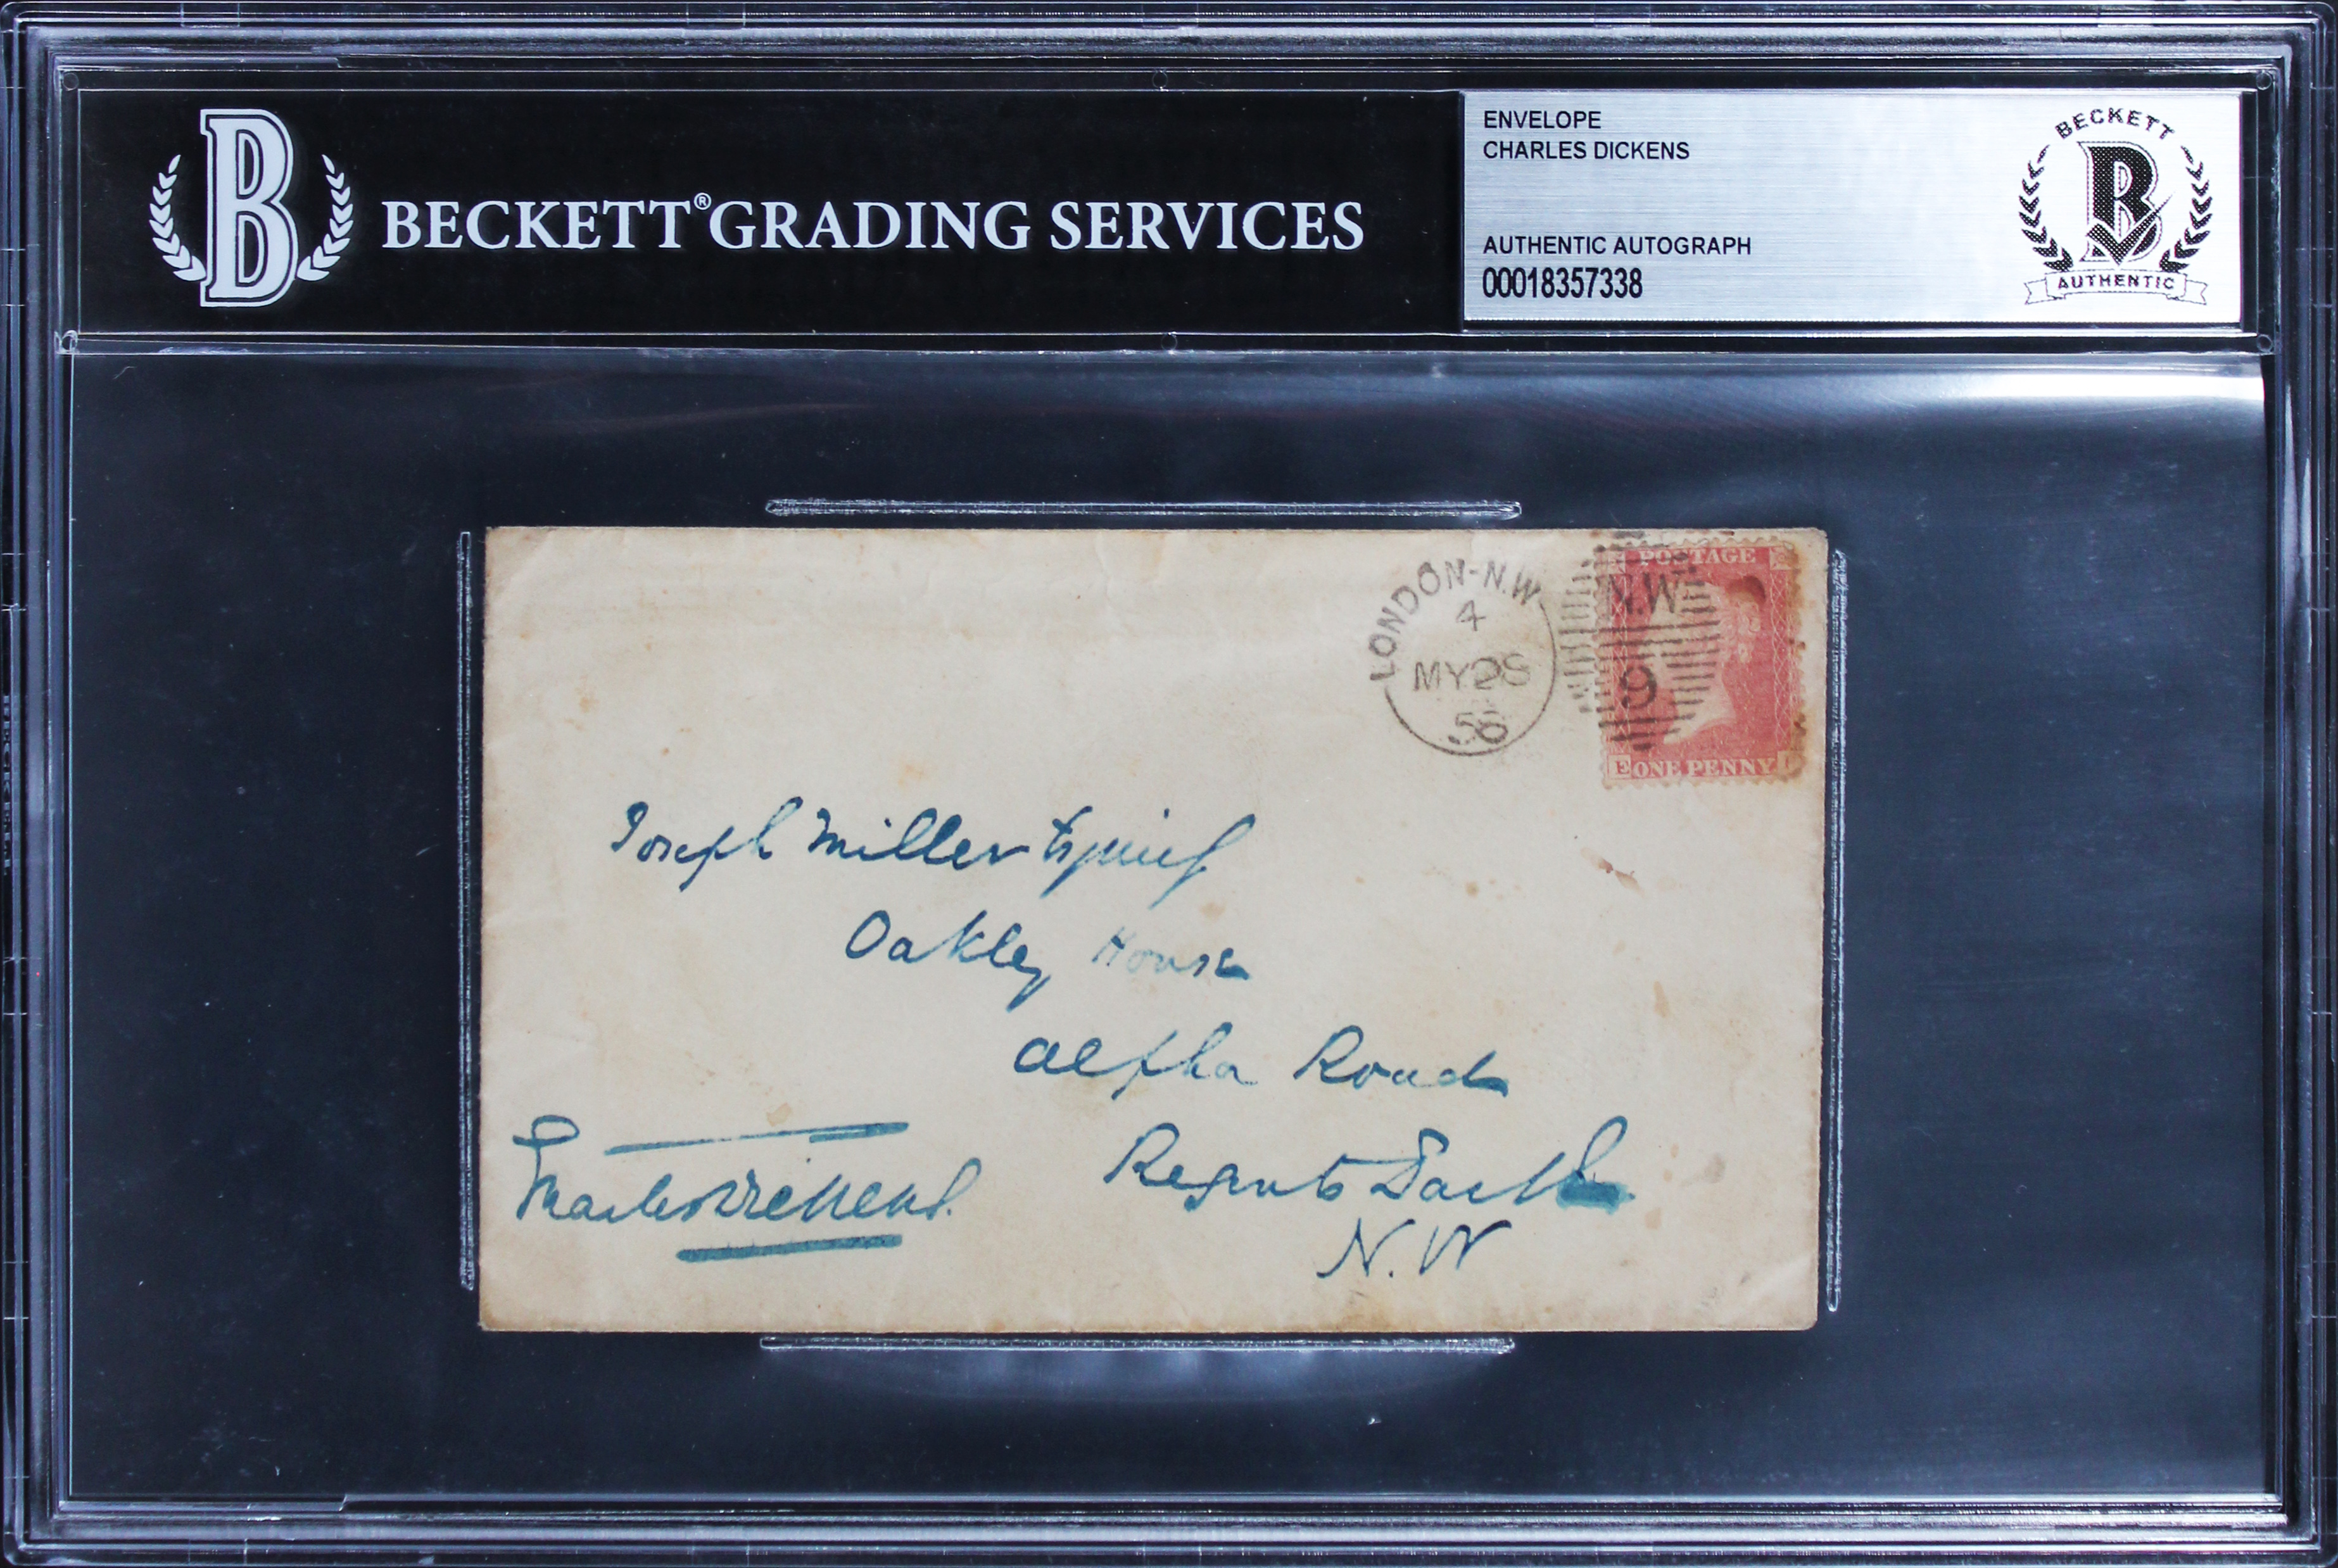 BECKETT® GRADING SERVICES
ENVELOPE
CHARLES DICKENS
AUTHENTIC AUTOGRAPH
00018357338
BECKETT
B
AUTHENTIC
B
LONDON-N.W
4
MY28
58
N.W
9
POSTAGE
E ONE PENNY
Joseph Miller Esquire
Oakley House
Alpha Road
Regents Park
N.W
Charles Dickens.